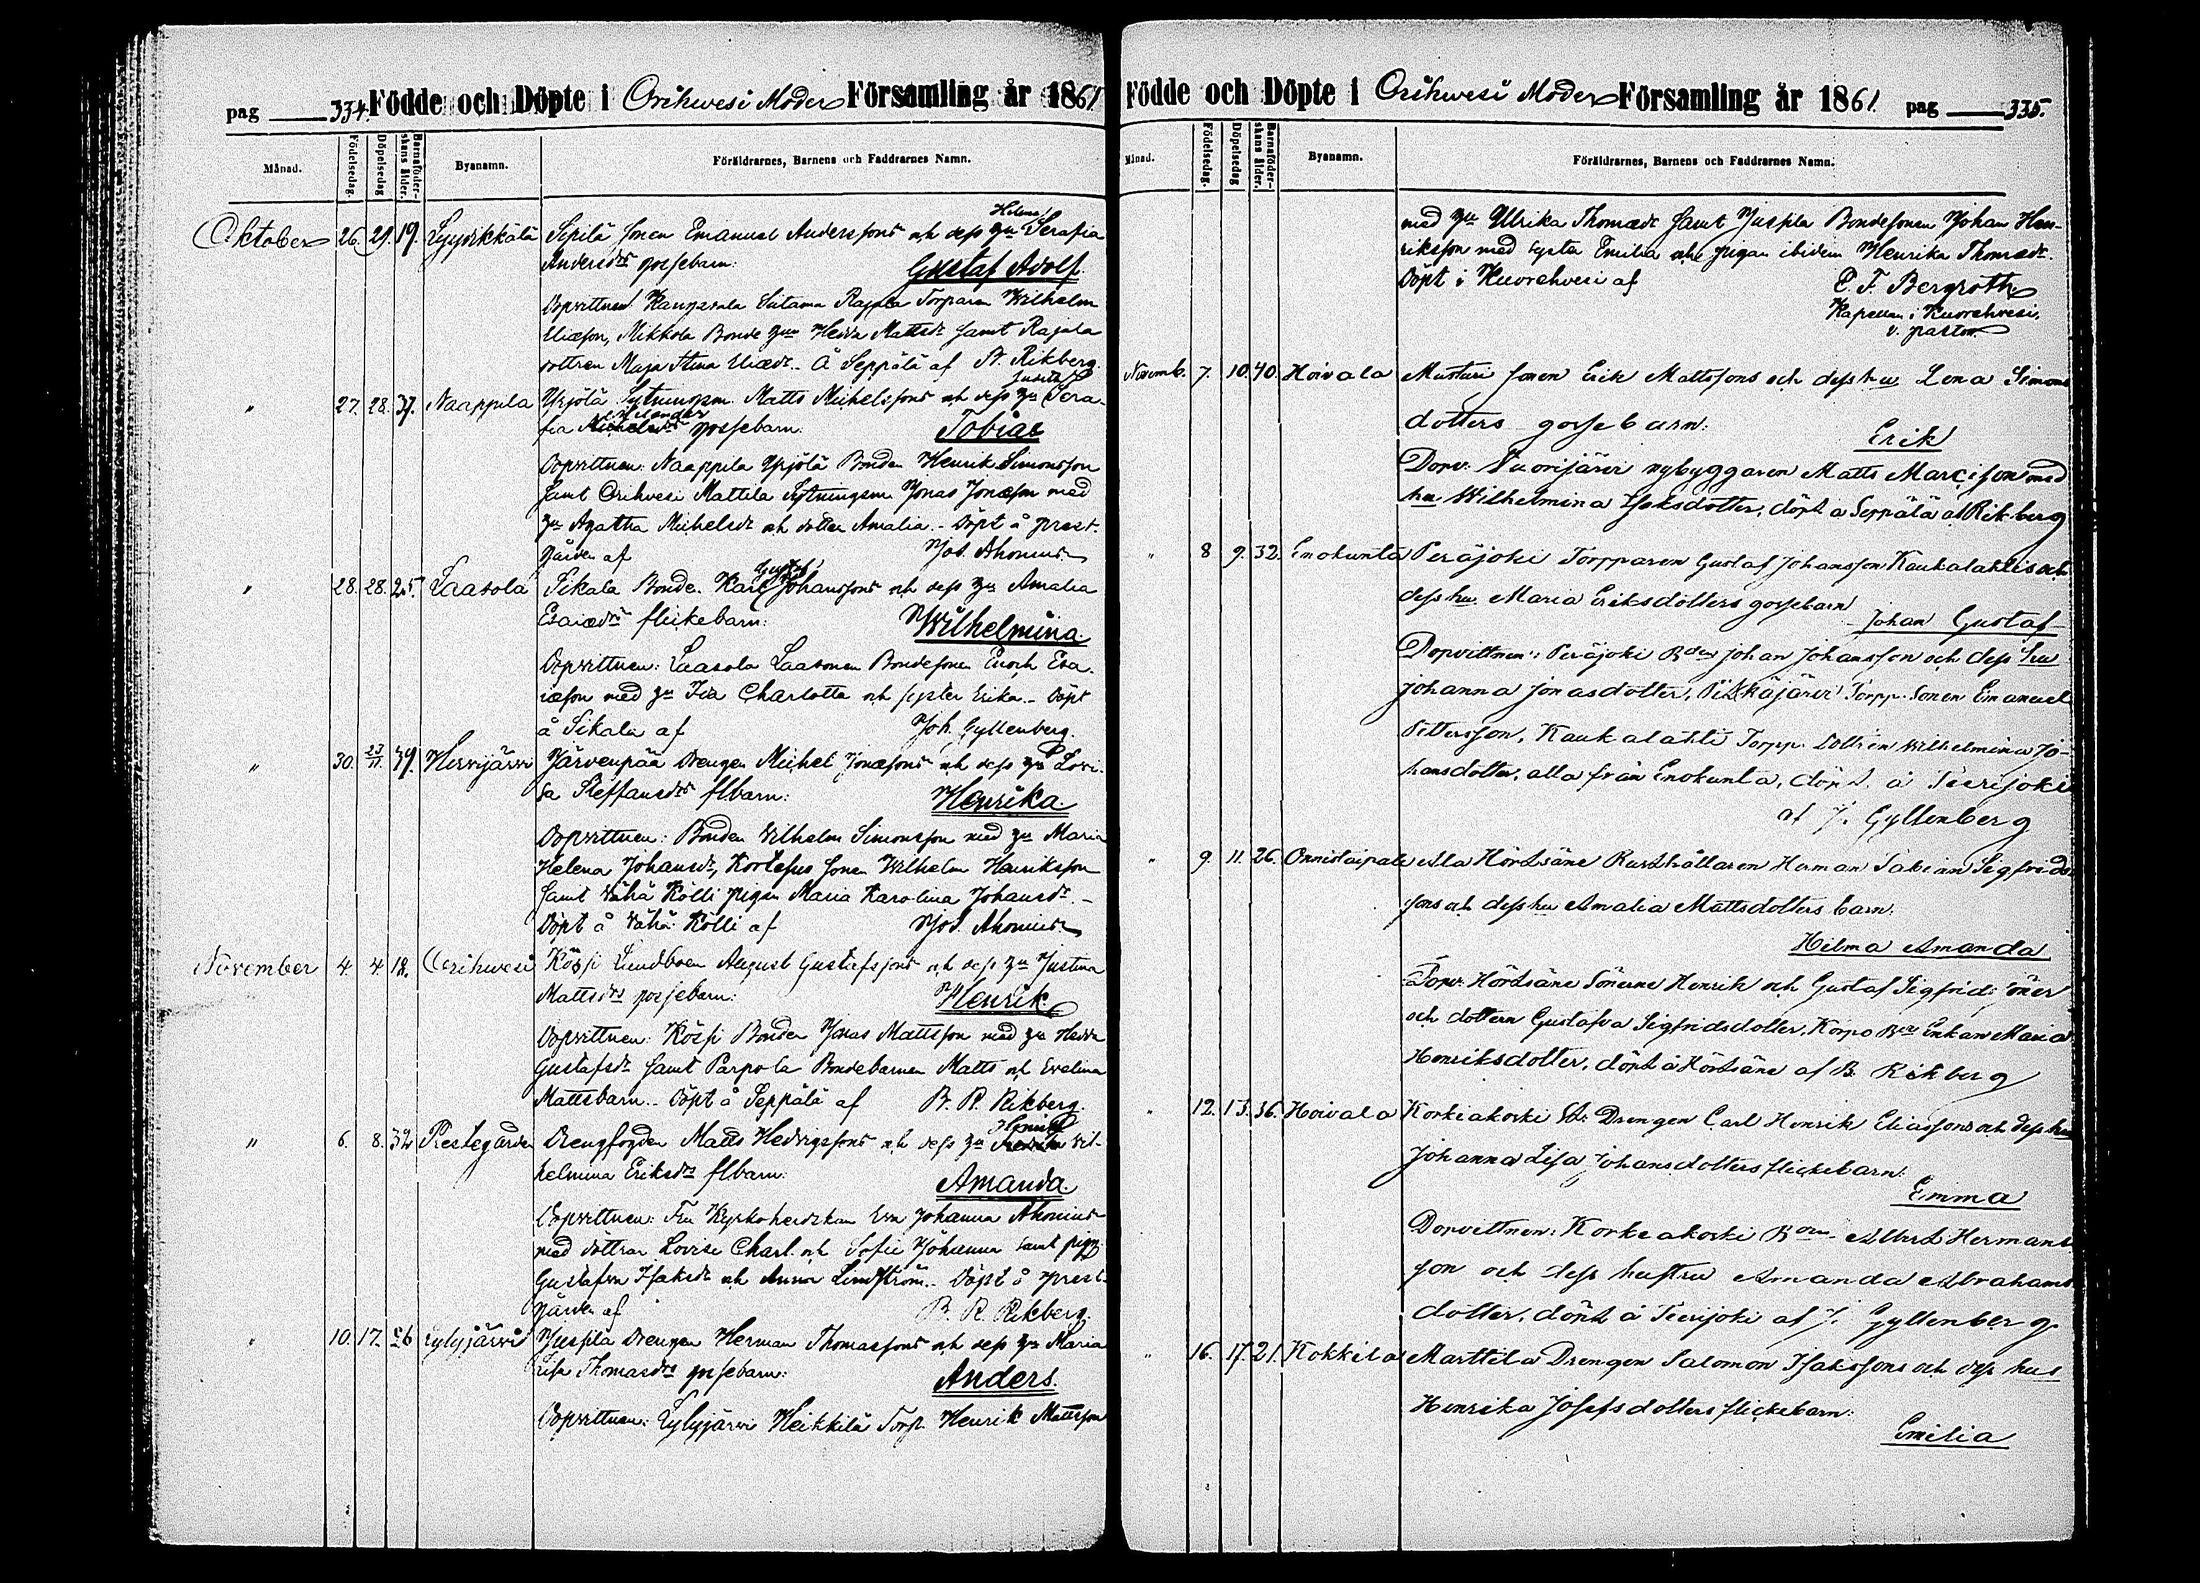 pag 334. Födde och Döpte i Orihwesi Moder Församling år 1861
Månad. Födelsedag. Döpelsedag Barnaföderskans ålder. Byanamn. Föräldrarnes, Barnens och Faddrarnes Namn.
Helena
Oktober 26. 29. 19. Lyydikkälä Sipilä sonen Emanuel Anderssons och dess hu Serafia
Andersdrs gossebarn: Gustaf Adolf.
Dopvittnen: Kangasala Suitama Rajala Torparen Wilhelm
Eliasson, Mikkola Bonde hun Hedda Mattsdr samt Rajala
dottren Maja Stina Eliædr. Å Seppälä af B. Rikberg.
Justina
" 27. 28. 37. Naappila Yrjölä Sytningsm. Matts Michelssons och dess hu Sera-
fia gossebarn: Tobias
Dopvittnen: Naappila Yrjölä Bonden Henrik Simonsson
samt Orihvesi Mattila Sytningsm Jonas Jonæson med
hu Agatha Michelsdr och dotter Amalia. - Döpt å prest-
gården af Jos. Ahonius
Gustaf
" 28. 28. 25. Laasola Sikala Bonde. Karl Johanssons och dess hu Amalia
Esaiædrs flickebarn: Wilhelmina.
Dopvittnen: Laasola Laasonen Bondesonen Enoch Esa-
iæson med hu Ida Charlotta och syster Erika. - Döpt
å Sikala af Joh. Gyllenberg.
" 30. 23/11. 39. Hirvijärvi Järvenpää Drengen Michel Jonæsons och dess hu Lovi-
sa Steffansdrs flbarn: Henrika.
Dopvittnen: Bonden Wilhelm Simonsson med hu Maria
Helena Johansdr, Kortesuo sonen Wilhelm Henriksson
samt Vähä Kölli pigan Maria Karolina Johansdr. -
Döpt å Vähä Kölli af Jos. Ahonius
November 4. 4 18. Orihwesi Köspi Landboen August Gustafssons och dess hu Justina
Mattsdrs gossebarn: Henrik.
Dopvittnen: Köspi Bonden Jonas Mattsson med hu Hedda
Gustafsdr samt Parpola Bondebarnen Matts och Evelina
Mattsbarn. Döpt å Seppälä af B. R. Rikberg.
Henrika
" 6. 8. 32 Prestegården Drengfogden Matts Hedvigssons och dess hu Wil-
helmina Eriksdrs flbarn: Amanda.
Dopvittnen: Fru Kyrkoherdskan Eva Johanna Ahonius
med döttrar Lovisa Charl. och Sofie Johanna samt pign.
Gustafva Isaksdr och Anna Lindström. - Döpt å prest-
gården af B. R. Rikberg.
" 10. 17. 26 Lylyjärvi Juspila Drengen Herman Thomassons och dess hu Maria
Lisa Thomasdrs gossebarn: Anders.
Dopvittnen: Lylyjärvi Heikkilä Torp. Henrik Mattsson
Födde och Döpte i Orihwesi Moder Församling år 1861. pag 335.
Månad. Födelsedag. Döpelsedag Barnaföderskans ålder. Byanamn. Föräldrarnes, Barnens och Faddrarnes Namn.
med hu Ulrika Thomædr samt Juspila Bondesonen Johan Hen-
riksson med syster Emilia och pigan ibidem Henrika Thomædr.
Döpt i Kuorehvesi af E. F. Bergroth
Kapellan i Kuorehvesi,
v. pastor
Novemb. 7. 10. 40. Hoivala Musturi sonen Erik Mattssons och dess hu Lena Simons
dotters gossebarn: Erik
Dopv: Vuorijärvi nybyggaren Matts Marcisson med
hu Wilhelmina Isaksdotter, döpt a Seppälä af Rikberg
" 8 9. 32. Enokunta Peräjoki Torpparen Gustaf Johansson Kaukalahtis och
dess hu Maria Eriksdotters gossebarn
Johan Gustaf
Dopvittnen: Peräjoki Bden Johan Johansson och dess hu
Johanna Jonasdotter, Pitkäjärvi Torpp. Sonen Emanuel
Pettersson, Kaukalahti Torpp. Dottren Wilhelmina Jo-
hansdotter, alla från Enokunta, döpt å Teerijoki
af J. Gyllenberg
" 9. 11. 26. Onnistaipale Ala Hörtsäne Rusthållaren Herman Fabian Sigfrids
sons och dess hu Amalia Mattsdotters barn:
Hilma Amanda
Dopv: Hörtsäne Sönerne Henrik och Gustaf Sigfrids söner
och dottern Gustafva Sigfridsdotter, Korpo Bde Enkan Maria
Henriksdotter, döpt å Hörtsäne af B. Rikberg
" 12. 13. 36. Hoivala Korkiakoski St. Drengen Carl Henrik Eliassons och dess hu
Johanna Lisa Johansdotters flickebarn:
Emma
Dopvittnen: Korkeakoski Bden Albert Hermans-
son och dess hustru Amanda Abrahams
dotter, döpt å Teerijoki af J. Gyllenberg.
" 16. 17. 21. Kokkila Marttila Drengen Salomon Isakssons och dess hus
Henrika Josefsdotters flickebarn:
Emilia